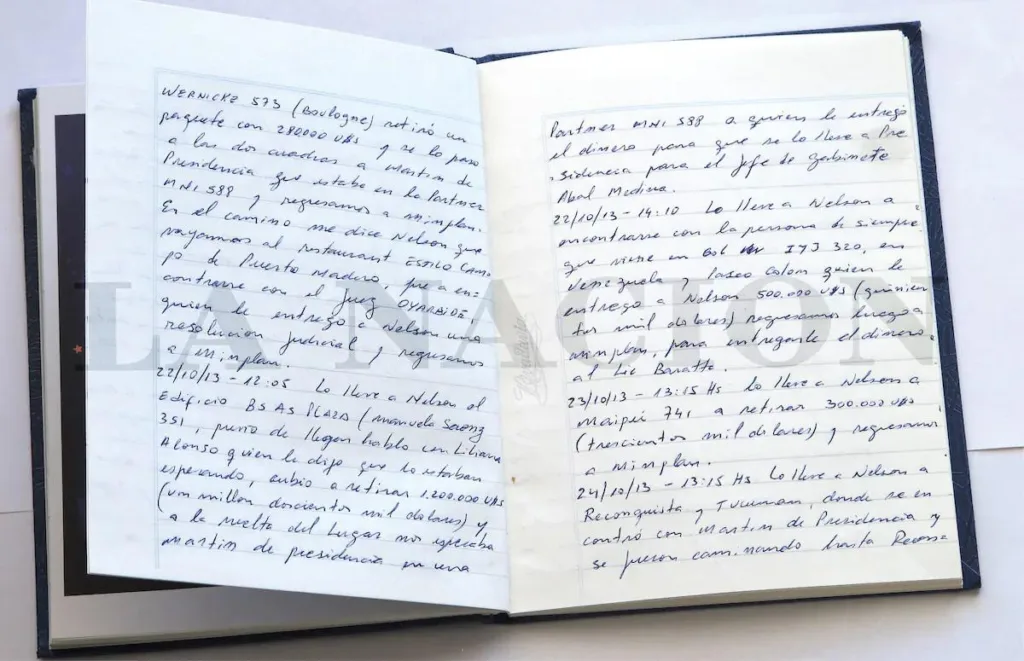 WERNICKE 573 (Boulogne) retiró un
paquete con 280.000 U$S y se lo paso
a las dos cuadras a Martin de
Presidencia que estaba en la Partner
MNI 588 y regresamos a Minplan.
En el camino me dice Nelson que
vayamos al restaurant ESTILO CAM-
PO de Puerto Madero, fue a en-
contrarse con el Juez OYARBIDE
quien le entregó a Nelson una
resolución Judicial y regresamos
a Minplan.
22/10/13 - 12:05 Lo lleve a Nelson al
Edificio BS AS PLAZA (Manuela Saenz
351, previo de llegar hablo con Liliana
Alonso quien le dijo que lo estaban
esperando, subio a retirar 1.200.000 U$S
(un millon doscientos mil dolares) y
a la vuelta del lugar nos esperaba
Martin de presidencia en una
Partner MNI 588 a quien le entregó
el dinero para que se lo lleve a Pre
sidencia para el Jefe de gabinete
Abal Medina.
22/10/13 - 14:10 Lo lleve a Nelson a
encontrarse con la persona de siempre
que viene en Gol ITJ 320, en
Venezuela y Paseo Colon quien le
entrego a Nelson 500.000 U$S (quinien
tos mil dolares) regresamos luego a
Minplan, para entregarle el dinero
al Lic Baratta.
23/10/13 - 13:15 Hs Lo lleve a Nelson a
Maipú 741 a retirar 300.000 U$S
(trescientos mil dolares) y regresamos
a Minplan.
24/10/13 - 13:15 Hs Lo lleve a Nelson a
Reconquista y Tucuman, donde se en
contró con Martin de Presidencia y
se fueron caminando hasta Recon
LA NACION